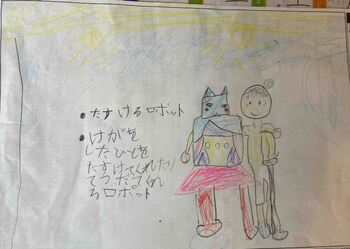 ●たすけるロボット
●けがを
したひとを
たすけてくれたり
てつだてくれ
るロボット